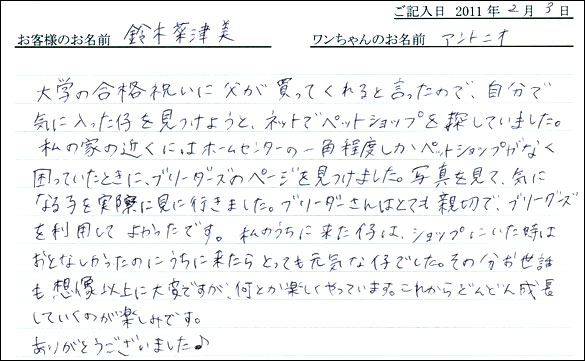 ご記入日 2011年2月3日
お客様のお名前 鈴木菜津美 ワンちゃんのお名前 アントニオ
大学の合格祝いに父が買ってくれると言ったので、自分で
気に入った仔を見つけようと、ネットでペットショップを探していました。
私の家の近くにはホームセンターの一角程度しかペットショップがなく
困っていたときに、ブリーダーズのページを見つけました。写真を見て、気に
なる子を実際に見に行きました。ブリーダーさんはとても親切で、ブリーダーズ
を利用してよかったです。私のうちに来た仔は、ショップにいた時は
おとなしかったのにうちに来たらとっても元気な仔でした。その分お世話
も想像以上に大変ですが、何とか楽しくやっています。これからどんどん成長
していくのが楽しみです。
ありがとうございました♪